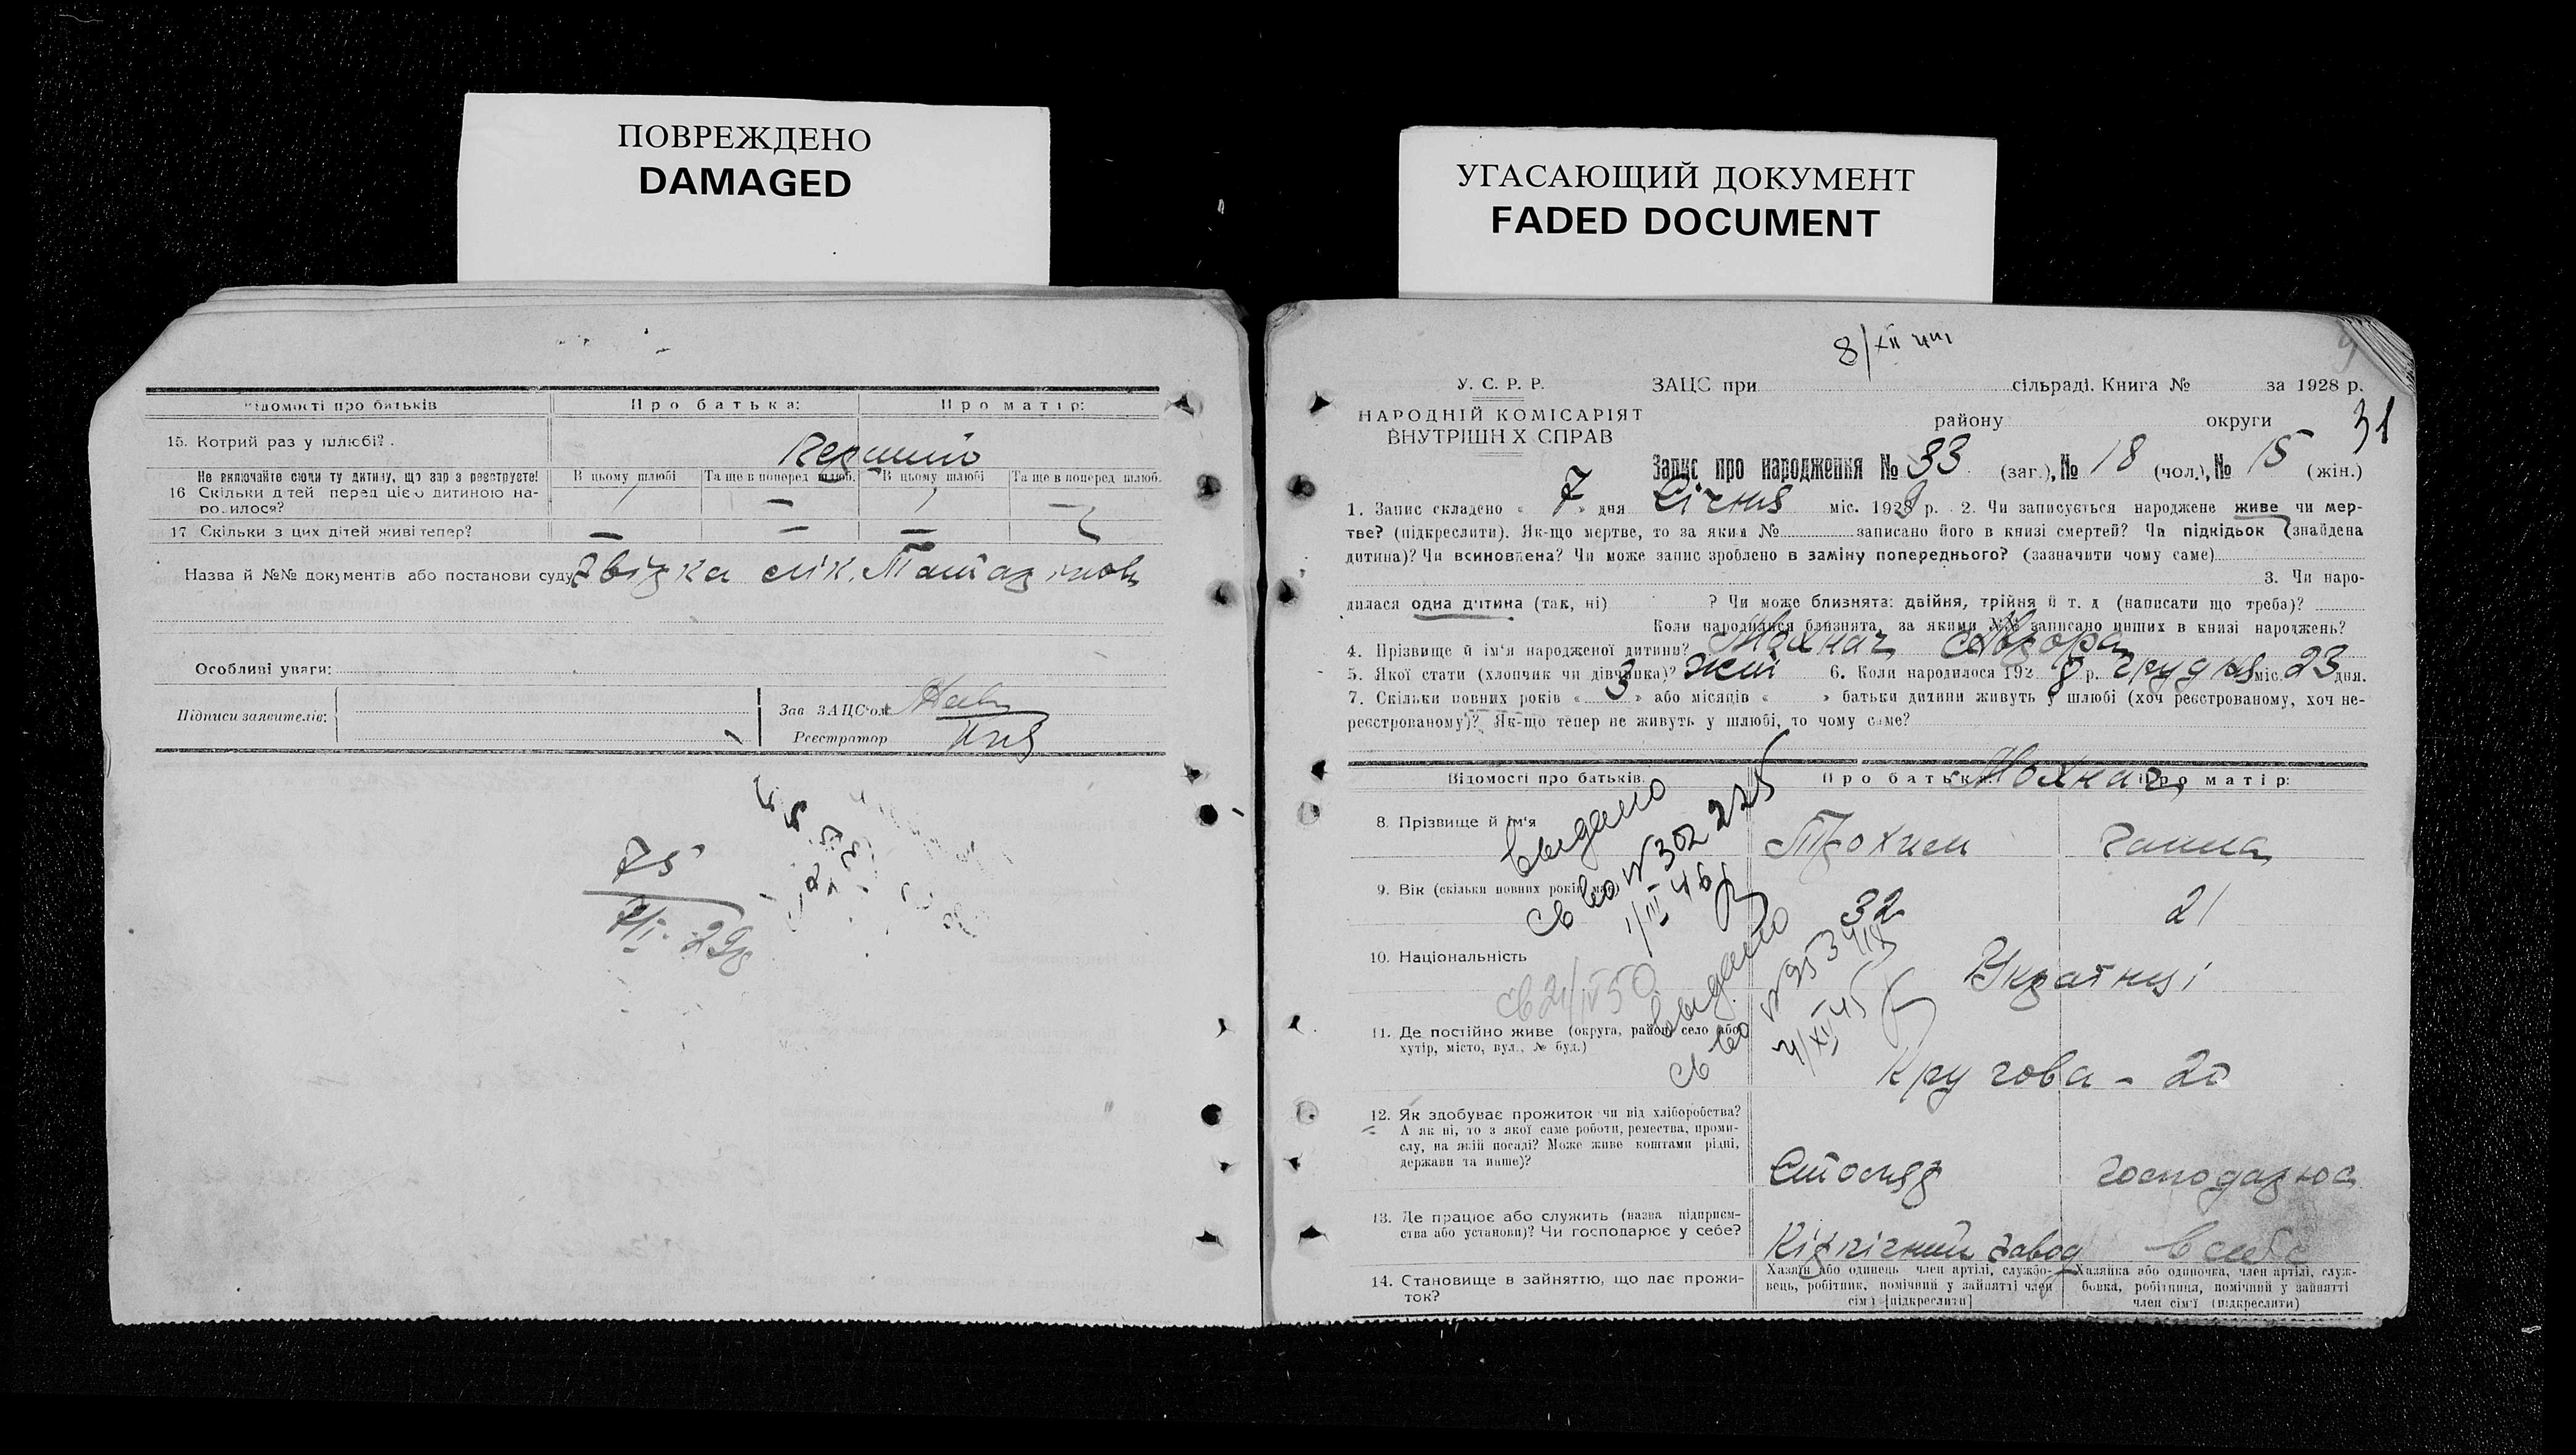 ПОВРЕЖДЕНО
DAMAGED
УГАСАЮЩИЙ ДОКУМЕНТ
FADED DOCUMENT
Відомості про батьків
Про батька:
Про матір:
15. Котрий раз у шлюбі?
Не включайте сюди ту дитину, що зараз реєструєте!
В цьому шлюбі
Та ще в поперед. шлюб.
В цьому шлюбі
Та ще в поперед. шлюб.
16 Скільки дітей перед цією дитиною на-
родилося?
17 Скільки з цих дітей живі тепер?
Назва й №№ документів або постанови суду
Особливі уваги:
Підписи заявителів:
Зав ЗАЦС'ом
Реєстратор
75
8/XII
У. С. Р. Р.
ЗАЦС при сільраді. Книга № за 1928 р.
НАРОДНІЙ КОМІСАРІЯТ
ВНУТРІШН Х СПРАВ
району округи 31
Запис про народження № 33 (заг.), № 18 (чол.), № 15 (жін.)
1. Запис складено « 7 » дня Січня міс. 1929 р. 2. Чи записується народжене живе чи мер-
тве? (підкреслити). Як-що мертве, то за яким № записано його в книзі смертей? Чи підкідьок (знайдена
дитина)? Чи всиновлена? Чи може запис зроблено в заміну попереднього? (зазначити чому саме)
3. Чи наро-
дилася одна дитина (так, ні) ? Чи може близнята: двійня, трійня й т. д (написати що треба)?
Коли народилися близнята, за якими №№ записано инших в книзі народжень?
4. Прізвище й ім'я народженої дитини? Мохнач
5. Якої стати (хлопчик чи дівчинка)? жін 6. Коли народилося 1928 р. грудня міс. 23 дня.
7. Скільки повних років « 3 » або місяців « » батьки дитини живуть у шлюбі (хоч реєстрованому, хоч не-
реєстрованому)? Як-що тепер не живуть у шлюбі, то чому саме?
Відомості про батьків.
Про батька:
Про матір:
Мохнач
8. Прізвище й ім'я
Трохим
Ганна
9. Вік (скільки повних років
32
21
10. Національність
Українці
11. Де постійно живе (округа, район, село або
хутір, місто, вул., № буд.)
Кругова - 20
12. Як здобуває прожиток чи від хліборобства?
А як ні, то з якої саме роботи, ремества, проми-
слу, на якій посаді? Може живе коштами рідні,
держави та инше)?
Столяр
господарює
13. Де працює або служить (назва підприєм-
ства або установи)? Чи господарює у себе?
Кірпічний завод
в себе
14. Становище в зайняттю, що дає прожи-
ток?
Хазяїн або одинець член артілі, службо-
вець, робітник, помічний у зайнятті член
сім'ї [підкреслити]
Хазяйка або одиночка, член артілі, служ-
бовка, робітниця, помічний у зайнятті
член сім'ї (підкреслити)